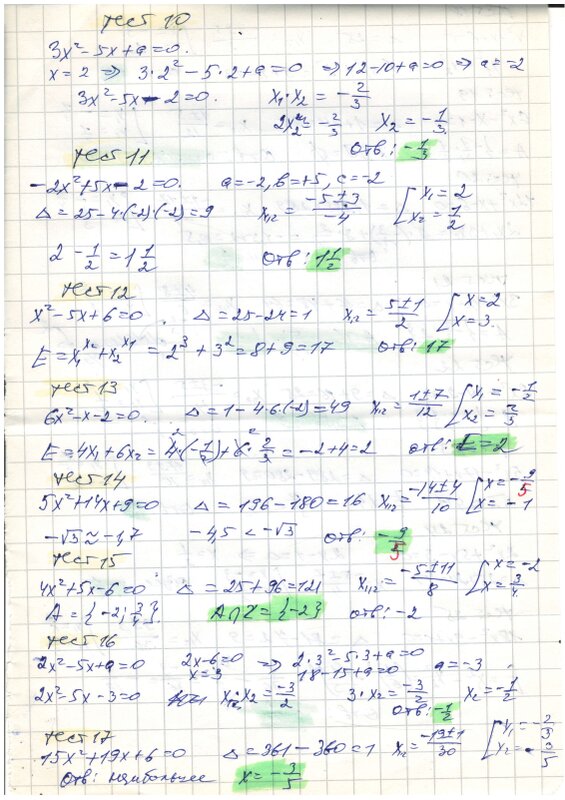 тест 10
3x²-5x+a=0.
x=2 ⇒ 3·2²-5·2+a=0 ⇒ 12-10+a=0 ⇒ a=-2
3x²-5x-2=0. x₁·x₂ = -2/3
2x₂=-2/3 x₂=-1/3
Отв: -1/3
тест 11
-2x²+5x-2=0. a=-2, b=+5, c=-2
Δ=25-4·(-2)·(-2)=9 x₁,₂=(-5±3)/-4 [x₁=2 x₂=1/2
2-1/2=1 1/2 Отв: 1 1/2
тест 12
x²-5x+6=0. Δ=25-24=1 x₁,₂=(5±1)/2 [x=2 x=3.
E=x₁^x₂+x₂^x₁=2³+3²=8+9=17 Отв: 17
тест 13
6x²-x-2=0. Δ=1-4·6·(-2)=49 x₁,₂=(1±7)/12 [x₁=-1/2 x₂=2/3
E=4x₁+6x₂=4·(-1/2)+6·2/3=-2+4=2 отв: E=2
тест 14
5x²+14x+9=0 Δ=196-180=16 x₁,₂=(-14±4)/10 [x=-9/5 x=-1
-√3≈-1,7 -4,5<-√3 отв: -9/5
тест 15
4x²+5x-6=0 Δ=25+96=121 x₁,₂=(-5±11)/8 [x=-2 x=3/4
A={-2; 3/4}. A∩Z={-2} отв: -2
тест 16
2x²-5x+a=0 2x-6=0 x=3 ⇒ 2·3²-5·3+a=0 18-15+a=0 a=-3
2x²-5x-3=0 x₁·x₂=-3/2 3·x₂=-3/2 x₂=-1/2
Отв: -1/2
тест 17
15x²+19x+6=0 Δ=361-360=1 x₁,₂=(-19±1)/30 [x₁=-2/3 x₂=-3/5
Отв: наибольшее x=-3/5